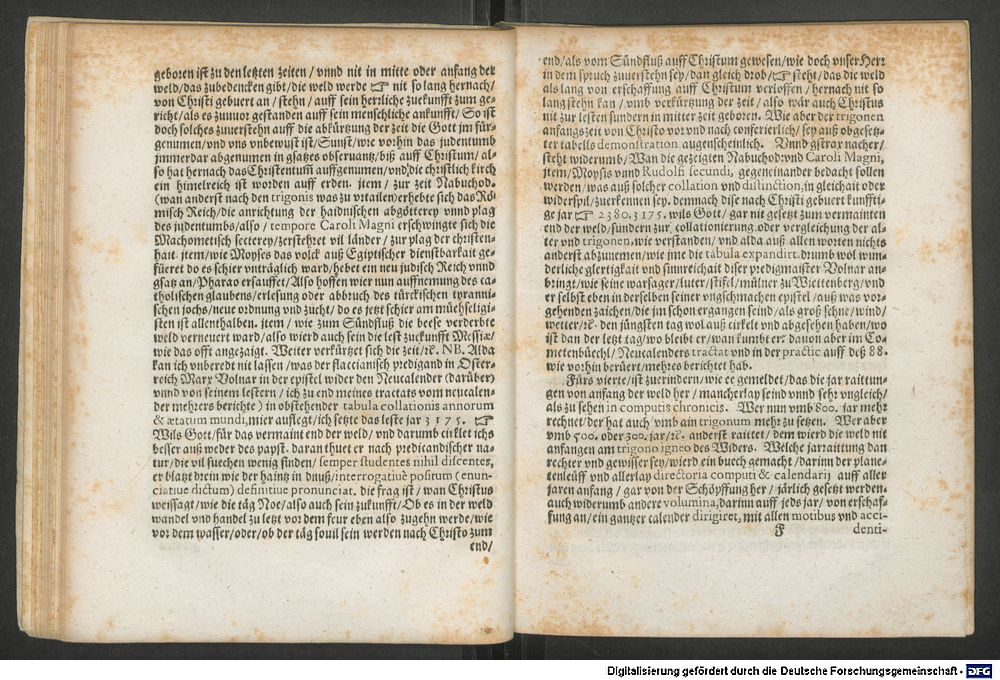 geboren ist zu den letzten zeiten / vnnd nit in mitte oder anfang der
weld / das zubedencken gibt / die weld werde ☞ nit so lang hernach /
von Christi gebuert an / stehn / auff sein herrliche zuekunfft zum ge-
richt / als es zuuuor gestanden auff sein menschliche ankunfft / So ist
doch solches zuuerstehn auff die abkürtzung der zeit die Gott jm für-
genumen / vnd vns vnbewust ist / Sunst / wie vorhin das judentumb
jmmerdar abgenumen in gsatzes obseruantz / biß auff Christum / al-
so hat hernach das Christentum auffgenumen / vnd die christlich kirch
ein himelreich ist worden auff erden. jtem / zur zeit Nabuchod.
(wan anderst nach den trigonis was zu vrtailen) erhebte sich das Rö-
misch Reich / die anrichtung der haidnischen abgötterey vnnd plag
des judentumbs / also / tempore Caroli Magni erschwingte sich die
Machometisch secterey / zerstehret vil länder / zur plag der christen-
hait. jtem / wie Moyses das volck auß Egiptischer dienstbarkait ge-
füeret do es schier vnträglich ward / hebet ein neu judisch Reich vnnd
gsatz an / Pharao ersauffet / Also hoffen wier nun auffnemung des ca-
tholischen glaubens / erlesung oder abbruch des türckischen tyranni-
schen jochs / neue ordnung vnd zucht / do es jetzt schier am müehseligi-
sten ist allenthalben. jtem / wie zum Sündfluß die beese verderbte
weld verneuert ward / also wierd auch sein die lest zuekunfft Messiæ /
wie das offt angezaigt. Weiter verkürtzet sich die zeit / ꝛc. NB. Alda
kan ich vnberedt nit lassen / was der flaccianisch predigand in Oster-
reich Marx Volnar in der epistel wider den Neucalender (darüber)
vnnd von seinem lestern / ich zu end meines tractats vom neucalen-
der mehrers berichte) in obstehender tabula collationis annorum
& ætatum mundi, mier auslegt / ich setzte das leste jar 3175. ☞
Wils Gott / für das vermaint end der weld / vnd darumb cirklet ichs
besser auß weder des papst. daran thuet er nach predicandischer na-
tur / die vil suechen wenig finden / semper studentes nihil discentes,
er blatzt drein wie der haintz in dnuß / interrogatiuè positum (enun-
ciatiue dictum) definitiue pronunciat. die frag ist / wan Christus
weissagt / wie die täg Noe / also auch sein zukunfft / Ob es in der weld
wandel vnd handel zu letzt vor dem feur eben also zugehn werde / wie
vor dem wasser / oder / ob der täg souil sein werden nach Christo zum
end /
end / als vom Sündfluß auff Christum gewesen / wie doch vnser Herr
in dem spruch zuuerstehn sey / dan gleich drob / ☞ steht / das die weld
als lang von erschaffung auff Christum verloffen / hernach nit so
lang stehn kan / vmb verkürtzung der zeit / also wär auch Christus
nit zur lesten sundern in mitter zeit geboren. Wie aber der trigonen
anfangszeit von Christo vor vnd nach conferierlich / sey auß obgesetz-
ter tabells demonstration augenscheinlich. Vnnd gstray nacher /
steht widerumb / Wan die gezeigten Nabuchod: vnd Caroli Magni,
jtem / Moysis vnnd Rudolfi secundi, gegeneinander bedacht sollen
werden / was auß solcher collation vnd distinction, in gleichait oder
widerspil / zuerkennen sey. demnach dise nach Christi gebuert kunffti-
ge jar ☞ 2380. 3175. wils Gott / gar nit gesetzt zum vermainten
end der weld / sundern zur collationierung oder vergleichung der al-
ter vnd trigonen, wie verstanden / vnd alda auß allen worten nichts
anderst abzunemen / wie jme die tabula expandirt. drumb wol wun-
derliche glertigkait vnd sinnreichait diser predigmaister Volnar an-
bringt / wie seine warsager / luter / stifel / müllner zu Wiettenberg / vnd
er selbst eben in derselben seiner vngschmachen epistel / auß was vor-
gehenden zaichen / die jm schon ergangen seind / als groß schne / wind /
wetter / ꝛc. den jüngsten tag wol auß tirkelt vnd abgesehen haben / wo
ist dan der letzt tag / wo bleibt er / wan kumbt er: dauon aber im Co-
metenbüechl / Neucalenders tractat vnd in der practic auff deß 88.
wie vorhin berüert / mehres berichtet hab.
Fürs vierte / ist zuerindern / wie ee gemeldet / das die jar raittun-
gen von anfang der weld her / mancherlay seind vnnd sehr vngleich /
als zu sehen in computis chronicis. Wer nun vmb 800. jar mehr
rechnet / der hat auch vmb ain trigonum mehr zu setzen. Wer aber
vmb 500. oder 300. jar / ꝛc. anderst raittet / dem wierd die weld nit
anfangen am trigono igneo des Widers. Welche jarraittung dan
rechter vnd gewisser sey / wierd ein buech gemacht / darinn der plane-
tenleüff vnd allerlay directoria computi & calendarij auff aller
jaren anfang / gar von der Schöpffung her / järlich gesetzt werden.
auch widerumb andere volumina, darinn auff jeds jar / von erschaf-
fung an / ein gantzer calender dirigiret, mit allen motibus vnd acci-
F denti-
Digitalisierung gefördert durch die Deutsche Forschungsgemeinschaft - DFG